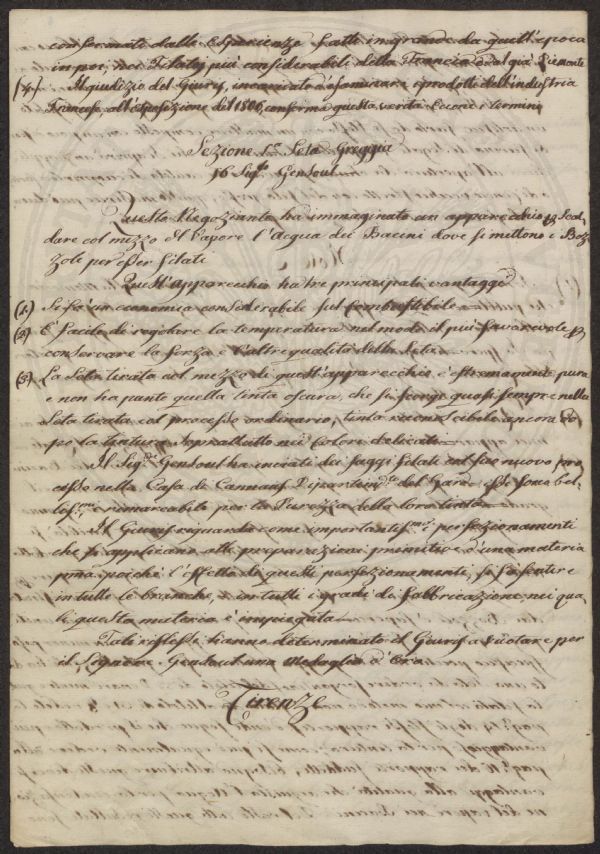 confermati dalle Esperienze fatte in grande da quest'epoca
in poi, nei Filatoj più considerabili della Francia e del già Piemonte
(4.) Il giudizio del Giury, incaricato d'esaminare i prodotti dell'industria
Francese all'esposizione del 1806, conferma questa verità. Eccone i termini
Sezione 1.ª Seta Greggia
16 Sig.re Gensoul
Questo Negoziante ha immaginato un apparecchio p. Scal
dare col mezzo del Vapore l'Acqua dei Bacini dove si mettono i Boz
zoli per esser filati
Quest'apparecchio ha tre principali vantaggi
(1.) Si fà un economia considerabile sul Combustibile
(2) È facile di regolare la temperatura nel modo il più favorevole p.
conservare la forza e l'altre qualità della Seta
(3) La Seta tirata col mezzo di quest'apparecchio è estremamente pura
e non ha punto quella tinta oscura, che si scorge quasi sempre nella
Seta tirata col processo ordinario, tinta riconoscibile ancora do
po la tintura soprattutto nei Colori delicati
Il Sig.re Gensoul ha inviati dei saggi filati col suo nuovo pro
cesso nella Casa di Dipartim.to del Gard, essi sono bel
lis.mi e rimarcabili per la Purezza della loro tinta
Il Giury riguarda come importantis.mi i perfezionamenti
che si applicano alle preparazioni primitive d'una materia
prima, poichè l'effetto di questi perfezionamenti, si fà sentire
in tutte le branche, e in tutti i gradi di fabbricazione nei qua
li questa materia è impiegata
Tali riflessi hanno determinato il Giury a votare per
il Signore Gensoul una Medaglia d'Oro
Firenze